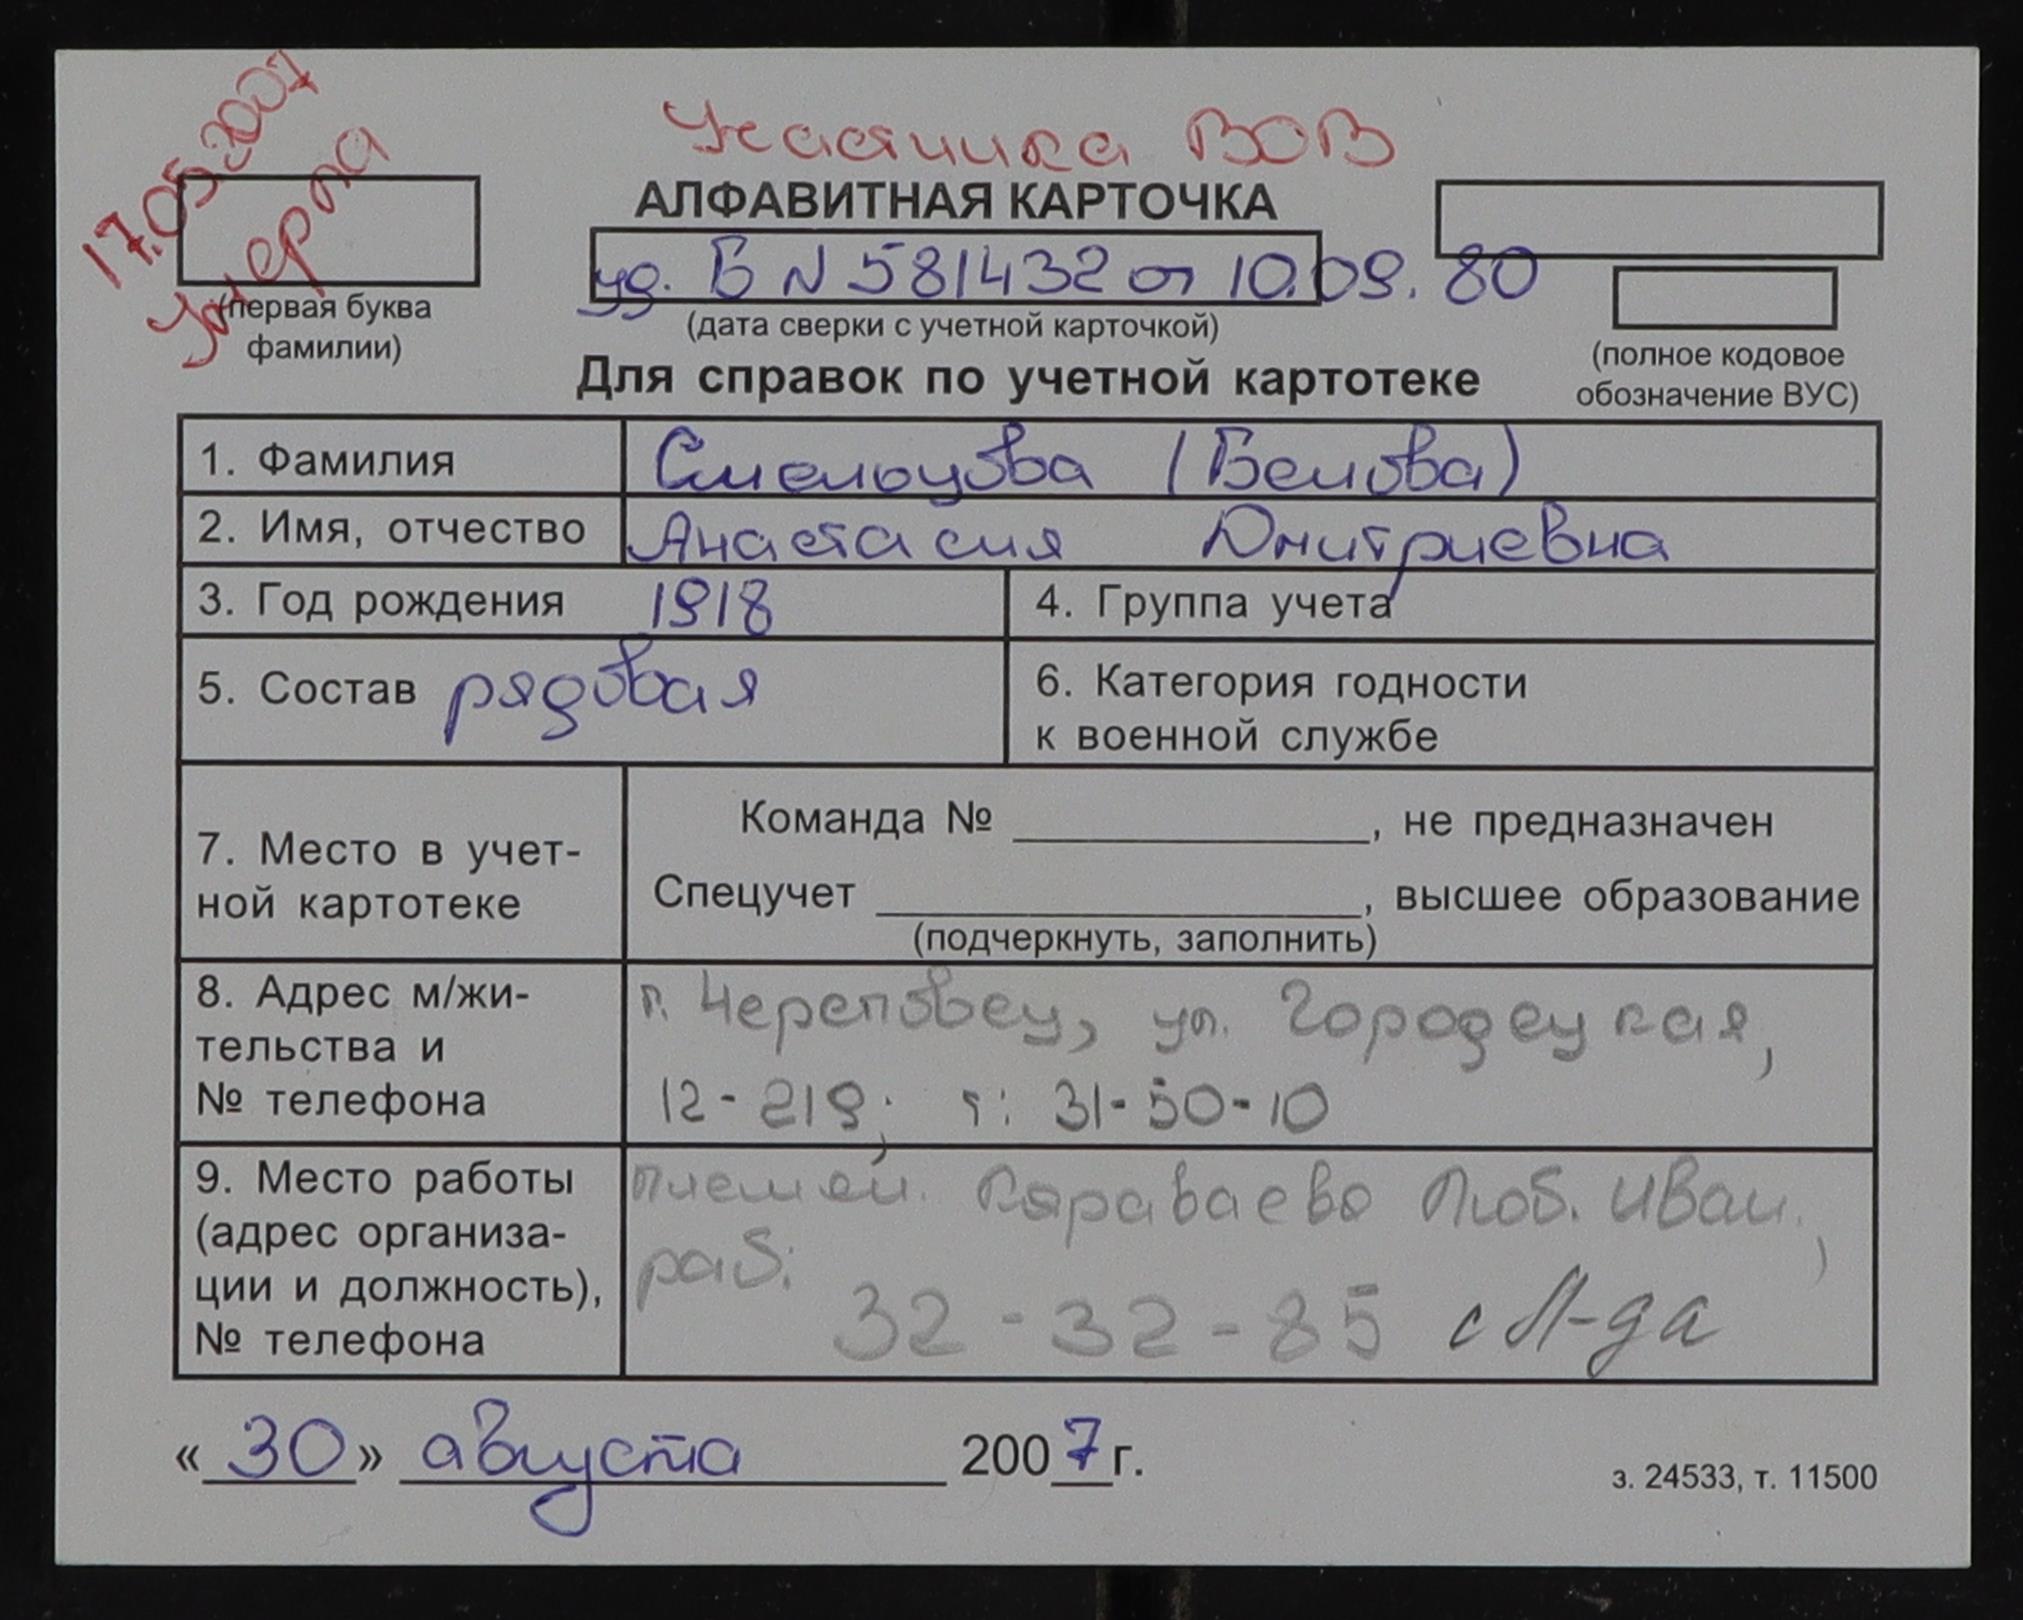 17.05.2007
Умерла
Участница ВОВ
АЛФАВИТНАЯ КАРТОЧКА
уд. Б N 581432 от 10.09.80
(первая буква
фамилии)
(дата сверки с учетной карточкой)
(полное кодовое
обозначение ВУС)
Для справок по учетной картотеке
1. Фамилия Смельцова (Белова)
2. Имя, отчество Анастасия Дмитриевна
3. Год рождения 1918 4. Группа учета
5. Состав рядовая
6. Категория годности
к военной службе
7. Место в учет-
ной картотеке
Команда № ____, не предназначен
Спецучет ____, высшее образование
(подчеркнуть, заполнить)
8. Адрес м/жи-
тельства и
№ телефона
г. Череповец, ул. Городецкая,
12-219; т: 31-50-10
9. Место работы
(адрес организа-
ции и должность),
№ телефона
Караваева Люб. Иван.,
раб:
32-32-85 с Л-да
«30» августа 2007 г.
з. 24533, т. 11500